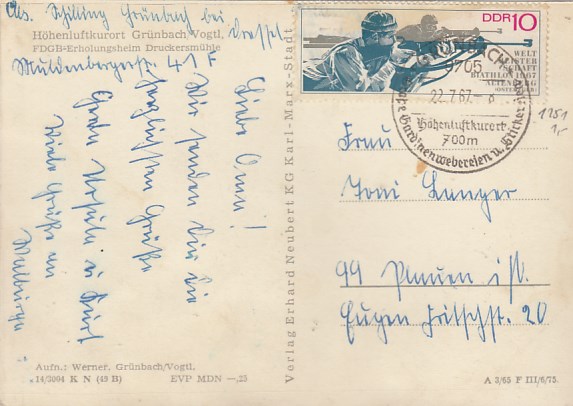 Abs. Schilling Grünbach bei
Höhenluftkurort Grünbach/Vogtl.
FDGB-Erholungsheim Druckersmühle
Muldenbergerstr. 41 F
Liebe Omi!
Wir senden Dir die
herzlichsten Grüße
Viele Grüße an
Verlag Erhard Neubert KG Karl-Marx-Stadt
DDR 10
WELT
MEISTER
SCHAFT
BIATHLON 1967
ALTENBERG
(OSTERZGEB.)
GRÜNBACH
9705
22.7.67
Höhenluftkurort
700m
Gardinenwebereien u. Stickereien
1251
Frau
Toni Langer
99 Plauen i/V.
Eugen Fritschstr. 20
Aufn.: Werner, Grünbach/Vogtl.
14/3004 K N (48 B) EVP MDN —,25
A 3/65 F III/6/75.